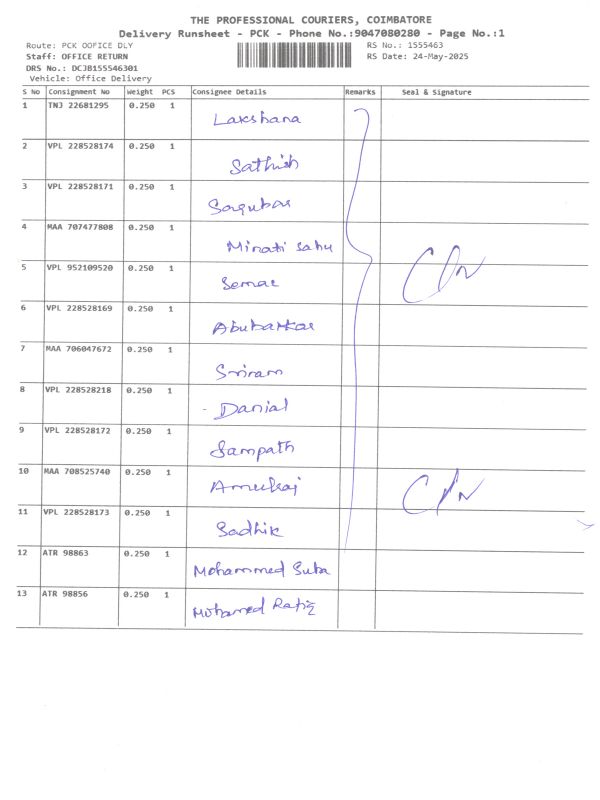 THE PROFESSIONAL COURIERS, COIMBATORE
Delivery Runsheet - PCK - Phone No.:9047080280 - Page No.:1
Route: PCK OOFICE DLY RS No.: 1555463
Staff: OFFICE RETURN RS Date: 24-May-2025
DRS No.: DCJB155546301
Vehicle: Office Delivery
S No Consignment No Weight PCS Consignee Details Remarks Seal & Signature
1 TNJ 22681295 0.250 1 Lakshana
2 VPL 228528174 0.250 1 Sathish
3 VPL 228528171 0.250 1
4 MAA 707477808 0.250 1 Minati Sahu
5 VPL 952109520 0.250 1
6 VPL 228528169 0.250 1
7 MAA 706047672 0.250 1 Sriram
8 VPL 228528218 0.250 1 - Danial
9 VPL 228528172 0.250 1 Sampath
10 MAA 708525740 0.250 1
11 VPL 228528173 0.250 1 Sadhik
12 ATR 98863 0.250 1 Mohammed
13 ATR 98856 0.250 1 Mohamed Rafiq